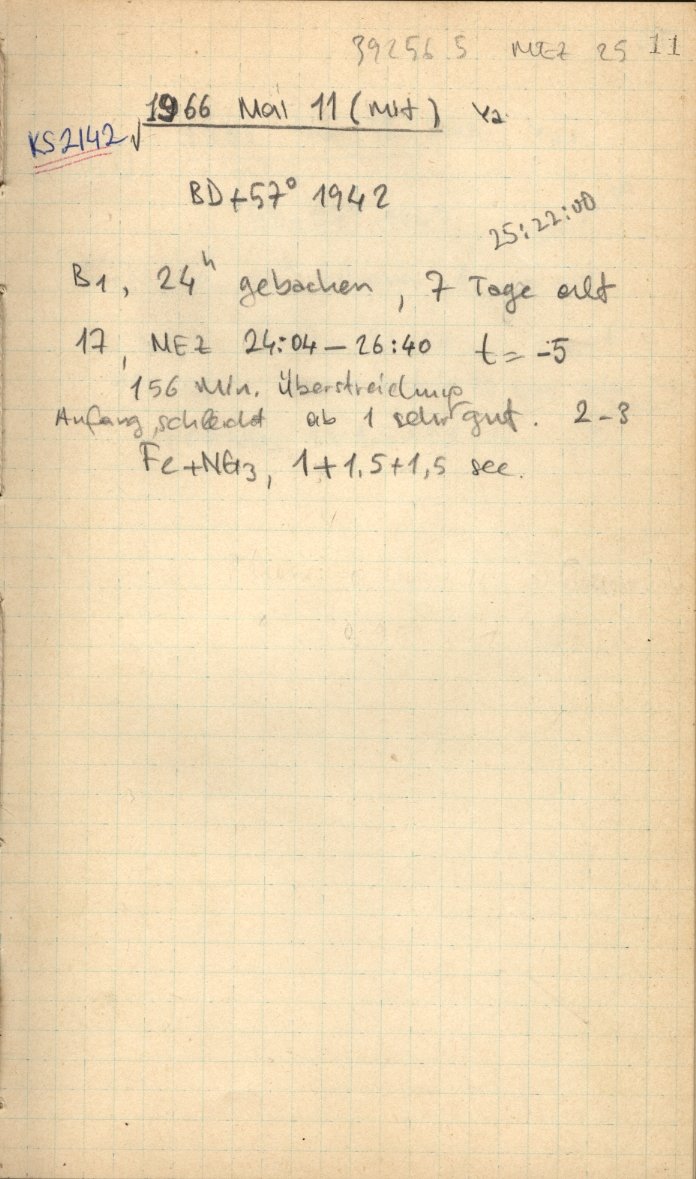 39256 5 MEZ 25 11
1966 Mai 11 (Mit) Y2
KS2142 √
BD+57° 1942
25:22:00
B1, 24h gebacken, 7 Tage alt
17, MEZ 24:04 – 26:40 t = -5
156 Min. Überstreichung
Anfang schlecht ab 1 sehr gut. 2-3
Fe+NG3, 1+1,5+1,5 sec.